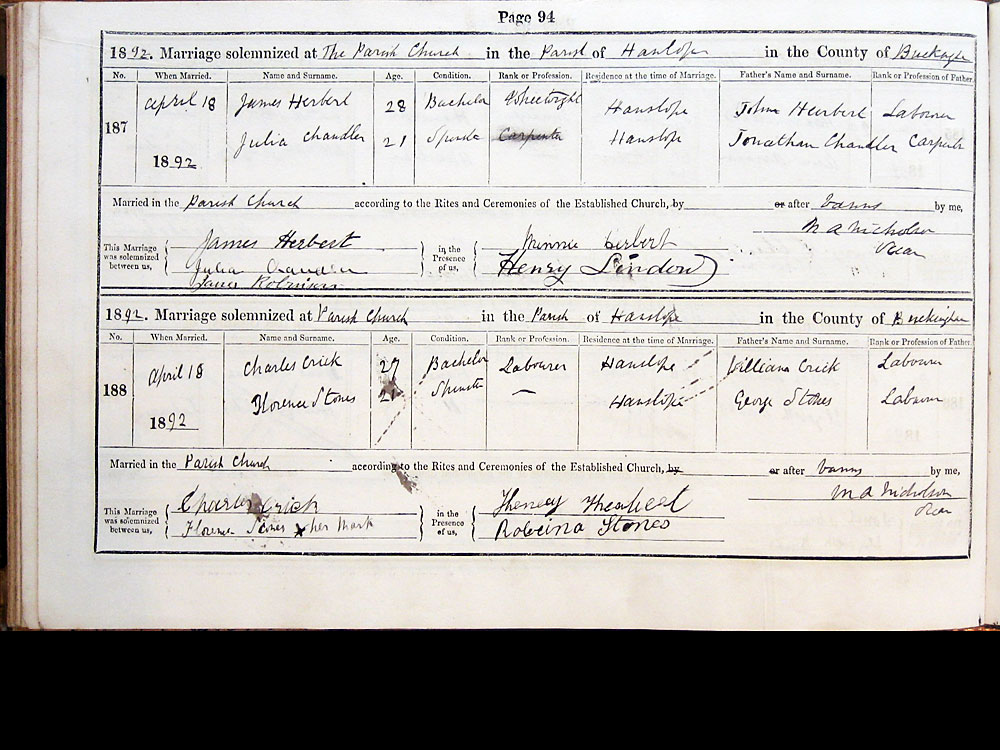 Page 94
1892. Marriage solemnized at The Parish Church in the Parish of Hanslope in the County of
No. When Married. Name and Surname. Age. Condition. Rank or Profession. Residence at the time of Marriage. Father's Name and Surname. Rank or Profession of Father.
187 April 18 James Herbert 28 Bachelor Wheelwright Hanslope John Heurbert Labourer
Julia Chandler 21 Carpenter Hanslope Jonathan Chandler Carpenter
1892
Married in the Parish Church according to the Rites and Ceremonies of the Established Church, by or after banns by me,
M A Nicholson
This Marriage was solemnized between us, James Herbert in the Presence of us, Minnie Herbert
Julia Henry Lindow
1892. Marriage solemnized at Parish Church in the Parish of Hanslope in the County of Buckingham
No. When Married. Name and Surname. Age. Condition. Rank or Profession. Residence at the time of Marriage. Father's Name and Surname. Rank or Profession of Father.
188 April 18 Charles Crick 27 Bachelor Labourer Hanslope William Crick Labourer
Florence Stones 21 Spinster — Hanslope George Stones Labourer
1892
Married in the Parish Church according to the Rites and Ceremonies of the Established Church, by or after banns by me,
M A Nicholson
This Marriage was solemnized between us, Charles Crick in the Presence of us,
Florence Stones x her mark Stones